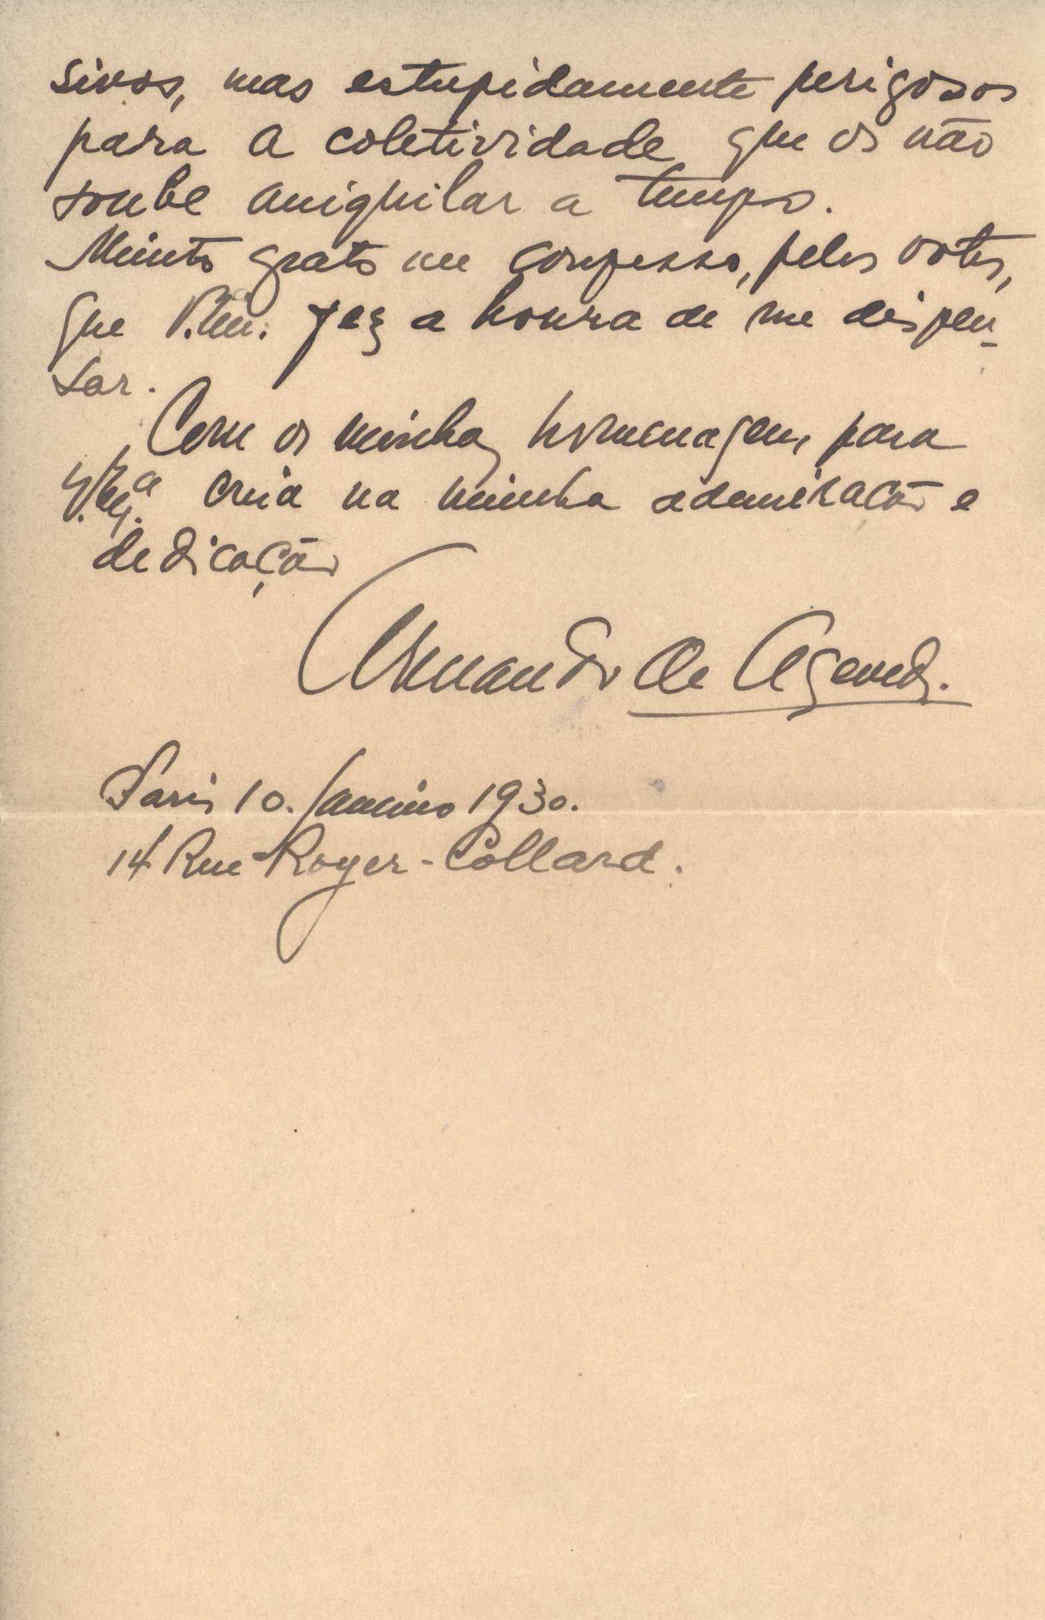 sivos, mas estupidamente perigosos
para a coletividade que os não
soube aniquilar a tempo.
Muito grato me confesso, pelos votos,
que V. fez a honra de me dispen-
sar.
Com os minhas homenagens, para
V. Ex.ª creia na minha admiração e
dedicação
Armando de Azevedo.
Paris 10. Janeiro 1930.
14 Rue Royer-Collard.